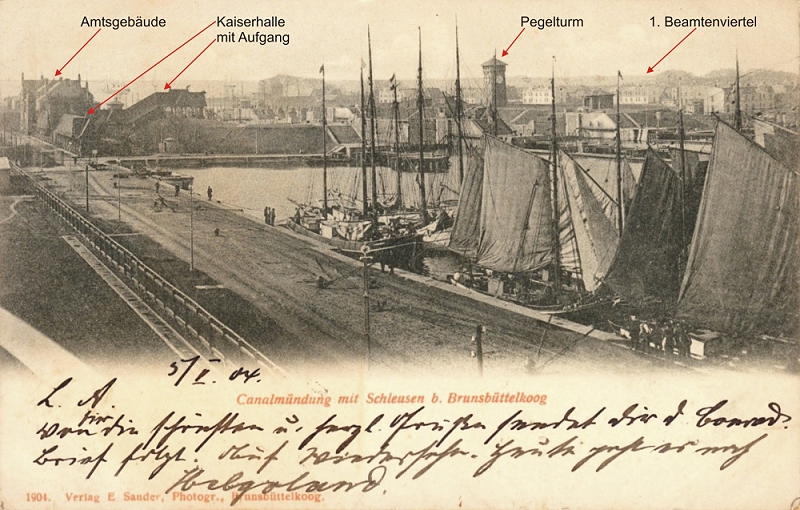 Amtsgebäude
Kaiserhalle
mit Aufgang
Pegelturm
1. Beamtenviertel
5/II. 04.
Canalmündung mit Schleusen b. Brunsbüttelkoog
L. A.
dir
Von die schönsten u. herzl. Grüße sendet dir d. Conrad.
Brief folgt. Auf Wiedersehn. Heute geht es nach
Helgoland.
1904. Verlag E Sander, Photogr., Brunsbüttelkoog.